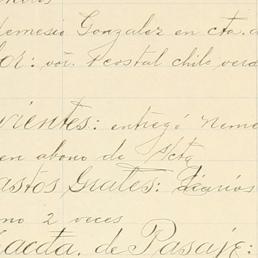 Nemesio Gonzalez en cta. d
lor: vor. 1 costal chile verd
rientes: entregó Neme
en abono de s/cta
astos Grales: Diarios
no 2 veces
acta. de Pasaje: